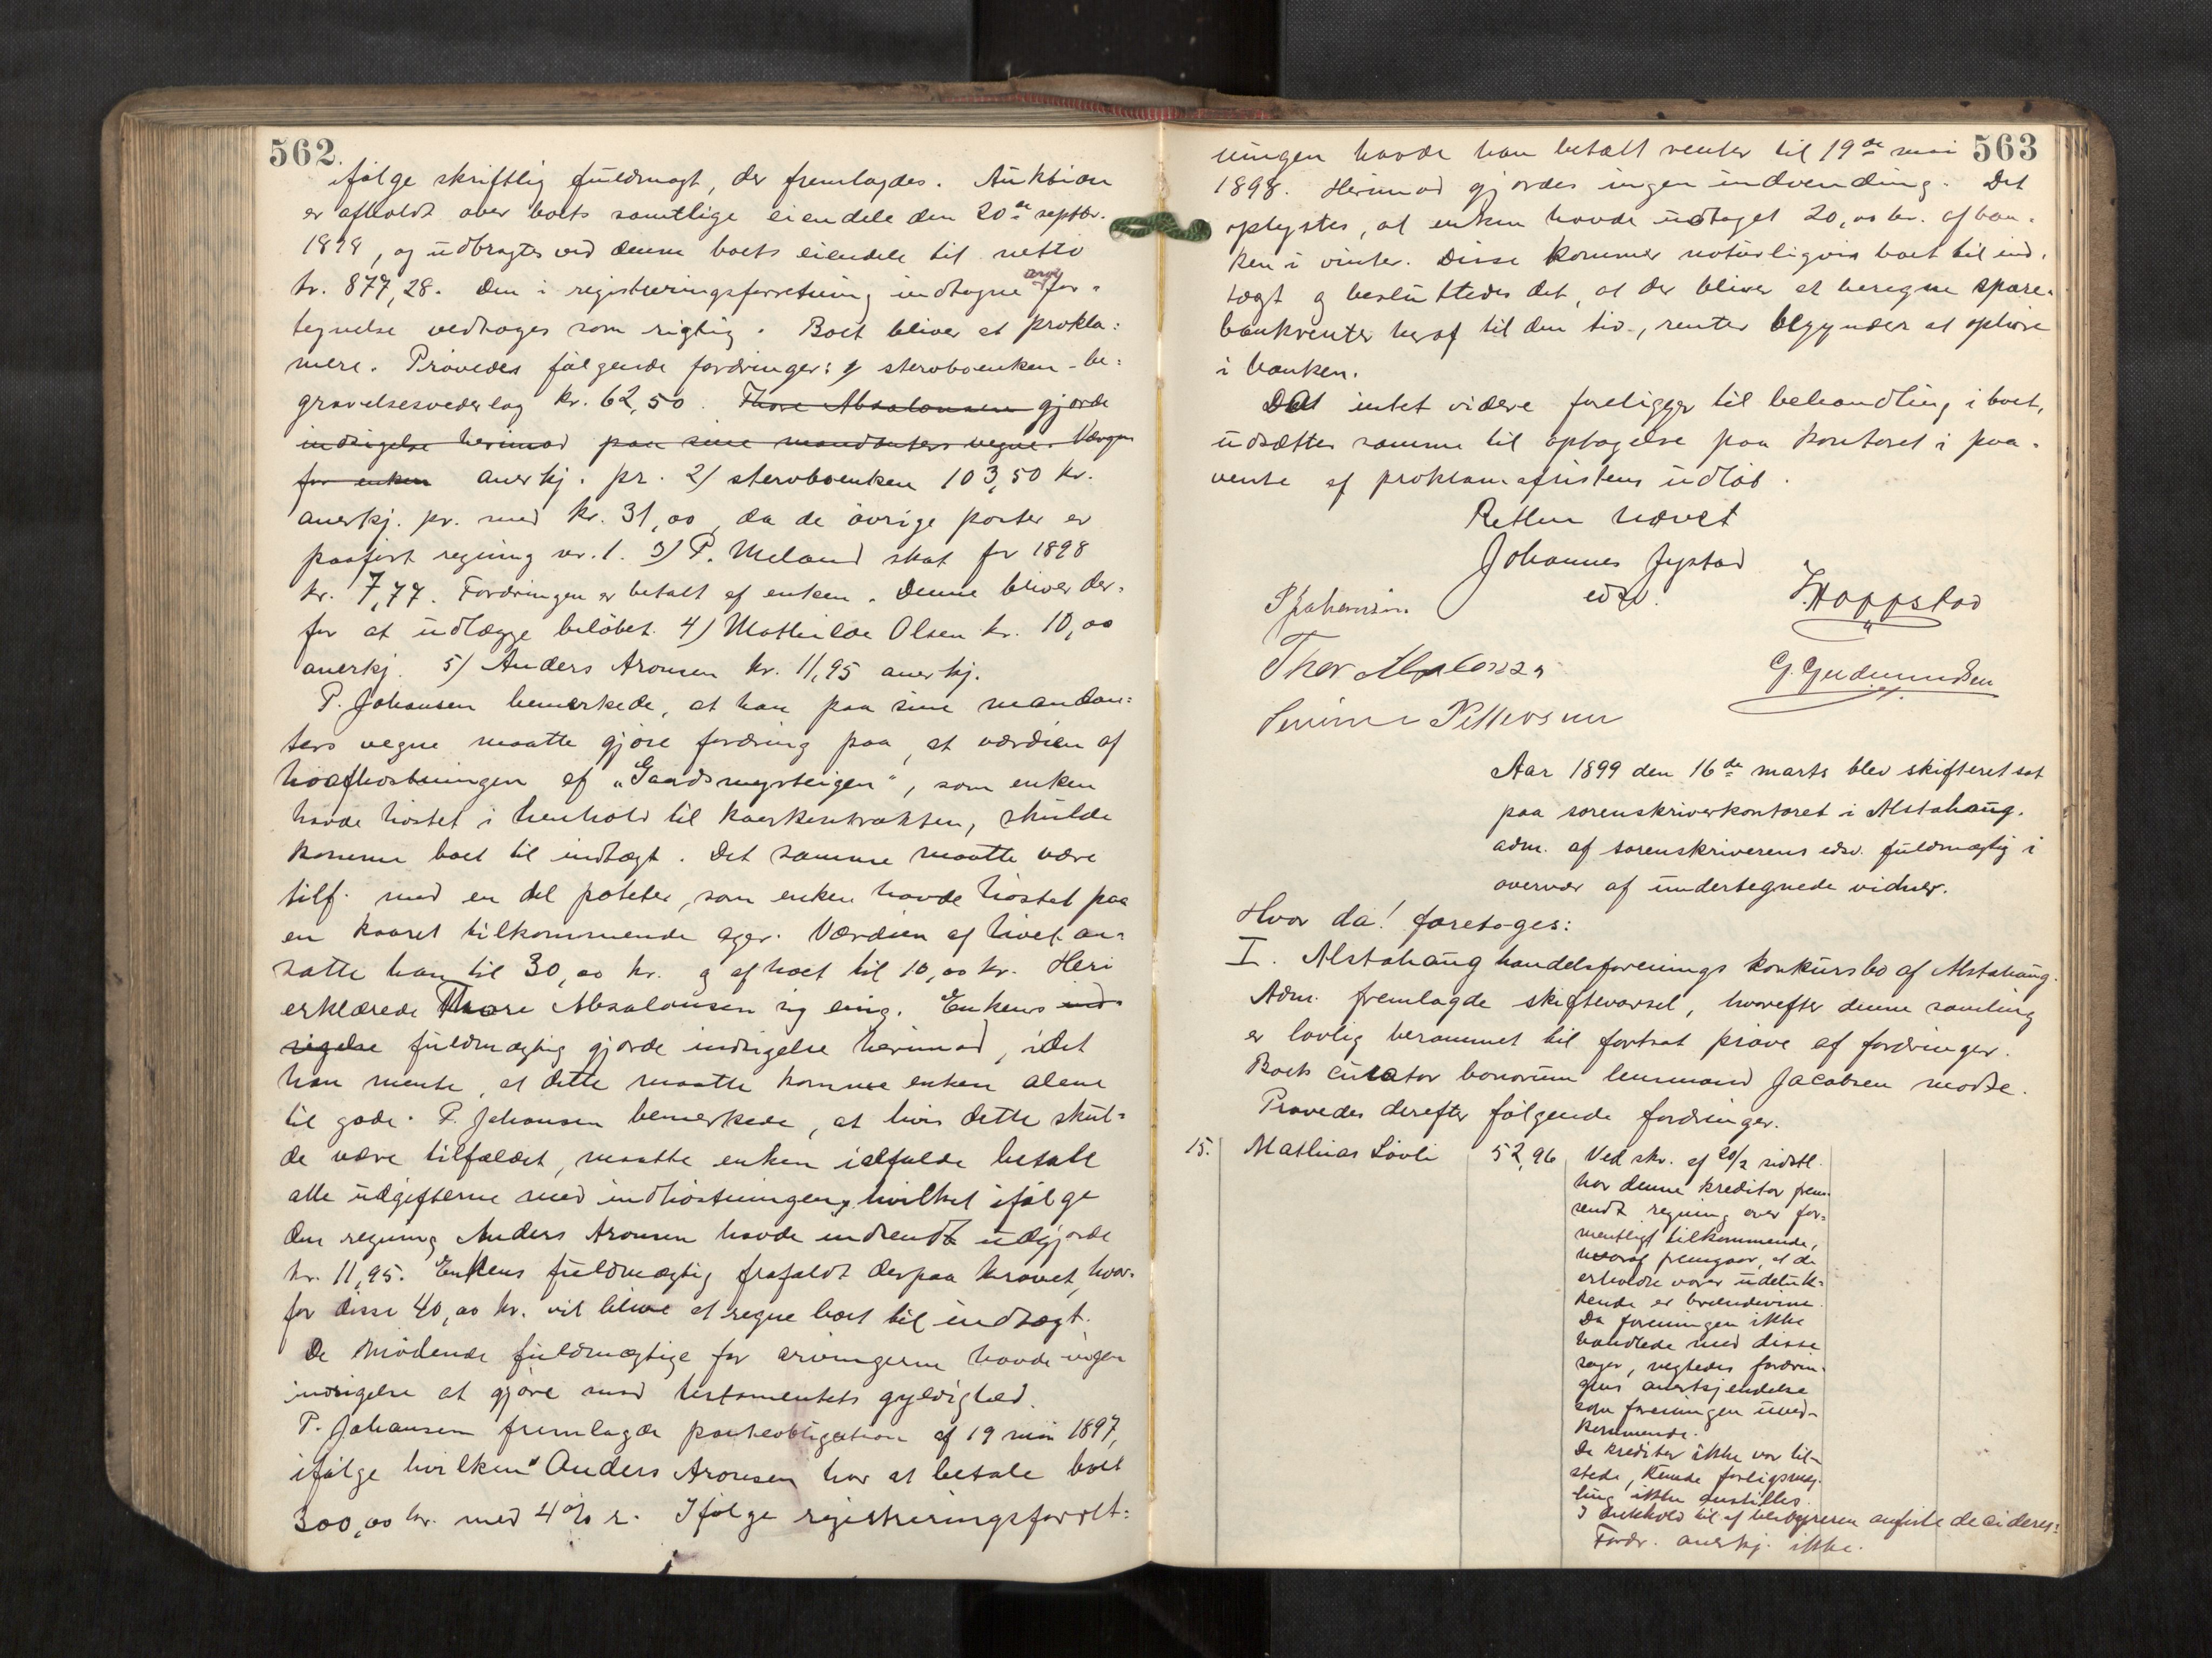 562.
ifølge skriftlig fuldmagt, der fremlagdes. Auktion
er afholdt over boets samtlige eiendele den 20de septbr.
1898, og udbragtes ved denne boets eiendele til netto
kr. 877,28. Den i registreringsforretning indtagne arve for-
tegnelse vedtoges som rigtig. Boet bliver at prokla-
mere. Prøvedes følgende fordringer: 1) sterboenken - be-
gravelsesvederlag kr. 62,50. Thore Absalonsen gjorde
indsigelse herimod paa sine mandanters vegne. Værgen
for enken anerkj. pr. 2) sterboenken 103,50 kr.
anerkj. pr. med kr. 31,00, da de øvrige poster er
paaført regning nr. 1. 3) P. Meland skat for 1898
kr. 7,77. Fordringen er betalt af enken. Denne bliver der-
for at udlægge beløbet. 4) Mathilde Olsen kr. 10,00
anerkj. 5) Anders Aronsen kr. 11,95 anerkj.
P. Johansen bemerkede, at han paa sine mandan-
ters vegne maatte gjøre fordring paa, at værdien af
høafhøstningen af "Gaardsmyrteigen", som enken
havde høstet i henhold til kaarkontrakten, skulde
komme boet til indtægt. Det samme maatte være
tilf. med en del poteter, som enken havde høstet paa
en kaaret tilkommende ager. Værdien af høiet an-
satte han til 30,00 kr. og af høet til 10,00 kr. Heri
erklærede Thore Absalonsen sig enig. Enkens ind-
sigelse fuldmægtig gjorde indsigelse herimod, idet
han mente, at dette maatte komme enken alene
til gode. P. Johansen bemerkede, at hvis dette skul-
de være tilfældet, maatte enken ialfald betale
alle udgifterne med indhøstningen, hvilket ifølge
den regning Anders Aronsen havde indsendt udgjorde
kr. 11,95. Enkens fuldmægtig frafaldt derpaa kravet, hvor-
for disse 40,00 kr. vil blive at regne boet til indtægt.
De mødende fuldmægtige for arvingerne havde ingen
indsigelse at gjøre mod testamentets gyldighed.
P. Johansen fremlagde panteobligation af 19 mai 1897,
ifølge hvilken Anders Aronsen har at betale boet
300,00 kr. med 4% r. Ifølge registreringsforret-
563
ningen havde han betalt renter til 19de mai
1898. Herimod gjordes ingen indvending. Det
oplystes, at enken havde udtaget 20,00 kr. af ban-
ken i vinter. Disse kommer naturligvis boet til ind-
tægt og besluttedes det, at der bliver at beregne spare-
bankrenter heraf til den tid, renter begynder at ophøre
i banken.
Da intet videre foreligger til behandling i boet,
udsættes samme til optagelse paa kontoret i paa-
vente af proklamafristens udløb.
Retten hævet
Johannes Jystad
edsv.
P Johansen.
J. Hoppstad
Thor Absalonsen
G. Gudmundsen
Petterson
Aar 1899 den 16de marts blev skifteret sat
paa sorenskriverkontoret i Alstahaug.
adm. af sorenskriverens edsv. fuldmægtig i
overvær af undertegnede vidner.
Hvor da! foretoges:
I. Alstahaug handelsforenings konkursbo af Alstahaug.
Adm. fremlagde skiftevarsel, hvorefter denne samling
er lovlig berammet til fortsat prøve af fordringer.
Boets curator bonorum lensmand Jacobsen mødte.
Prøvedes derefter følgende fordringer.
15. Mathias Løvli 52,96 Ved skr. af 20/2 sidstl.
har denne kreditor frem-
sendt regning over for-
mentligt tilkommende,
hvoraf fremgaar, at de
erholdte varer udeluk-
kende er brændevine.
Da foreningen ikke
handlede med disse
sager, negtedes fordrin-
gens anerkjendelse
som foreningen uved-
kommende.
Da kreditor ikke var til-
stede, kunde forligsmæg-
ling ikke anstilles.
I henhold til af bestyreren anførte decideres:
Fordr. anerkj. ikke.